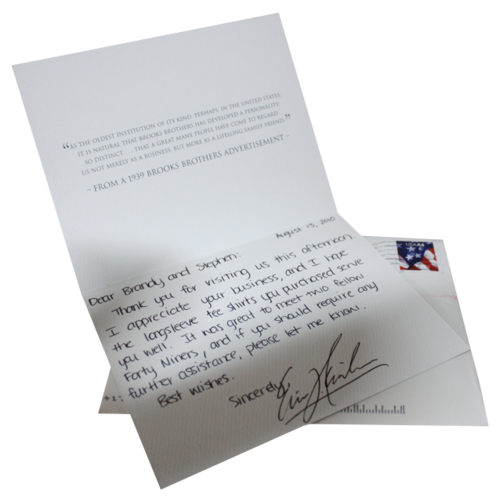 “AS THE OLDEST INSTITUTION OF ITS KIND, PERHAPS, IN THE UNITED STATES,
IT IS NATURAL THAT BROOKS BROTHERS HAS DEVELOPED A PERSONALITY
SO DISTINCT . . . THAT A GREAT MANY PEOPLE HAVE COME TO REGARD
US NOT MERELY AS A BUSINESS, BUT MORE AS A LIFELONG FAMILY FRIEND.”
– FROM A 1939 BROOKS BROTHERS ADVERTISEMENT –
August 15, 2010
Dear Brandy and Stephen:
Thank you for visiting us this afternoon.
I appreciate your business, and I hope
the longsleeve tee shirts you purchased serve
you well. It was great to meet two fellow
Forty Niners, and if you should require any
further assistance, please let me know.
Best wishes.
Sincerely,